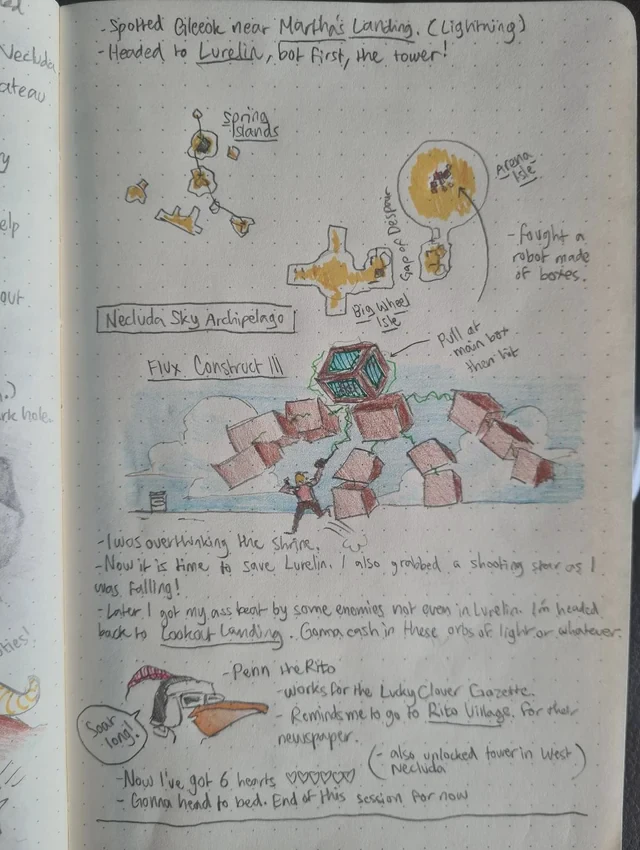 - Spotted Gleeok near Martha's Landing. (Lightning)
- Headed to Lurelin, but first, the tower!
Spring
Islands
Arena
Isle
Gap of Despair
- fought a
robot made
of boxes.
Big Wheel
Isle
Necluda Sky Archipelago
Pull at
main box
then hit
Flux Construct III
- I was overthinking the shrine.
- Now it is time to save Lurelin. I also grabbed a shooting star as I
was falling!
- Later I got my ass beat by some enemies not even in Lurelin. I'm headed
back to Lookout Landing. Gonna cash in these orbs of light or whatever.
- Penn the Rito
- works for the Lucky Clover Gazette.
- Reminds me to go to Rito Village. For their
newspaper.
Soar
long!
(- also unlocked tower in West
Necluda)
- Now I've got 6 hearts ♡♡♡♡♡♡
- Gonna head to bed. End of this session for now
Necluda
ateau
elp
out
rk hole.